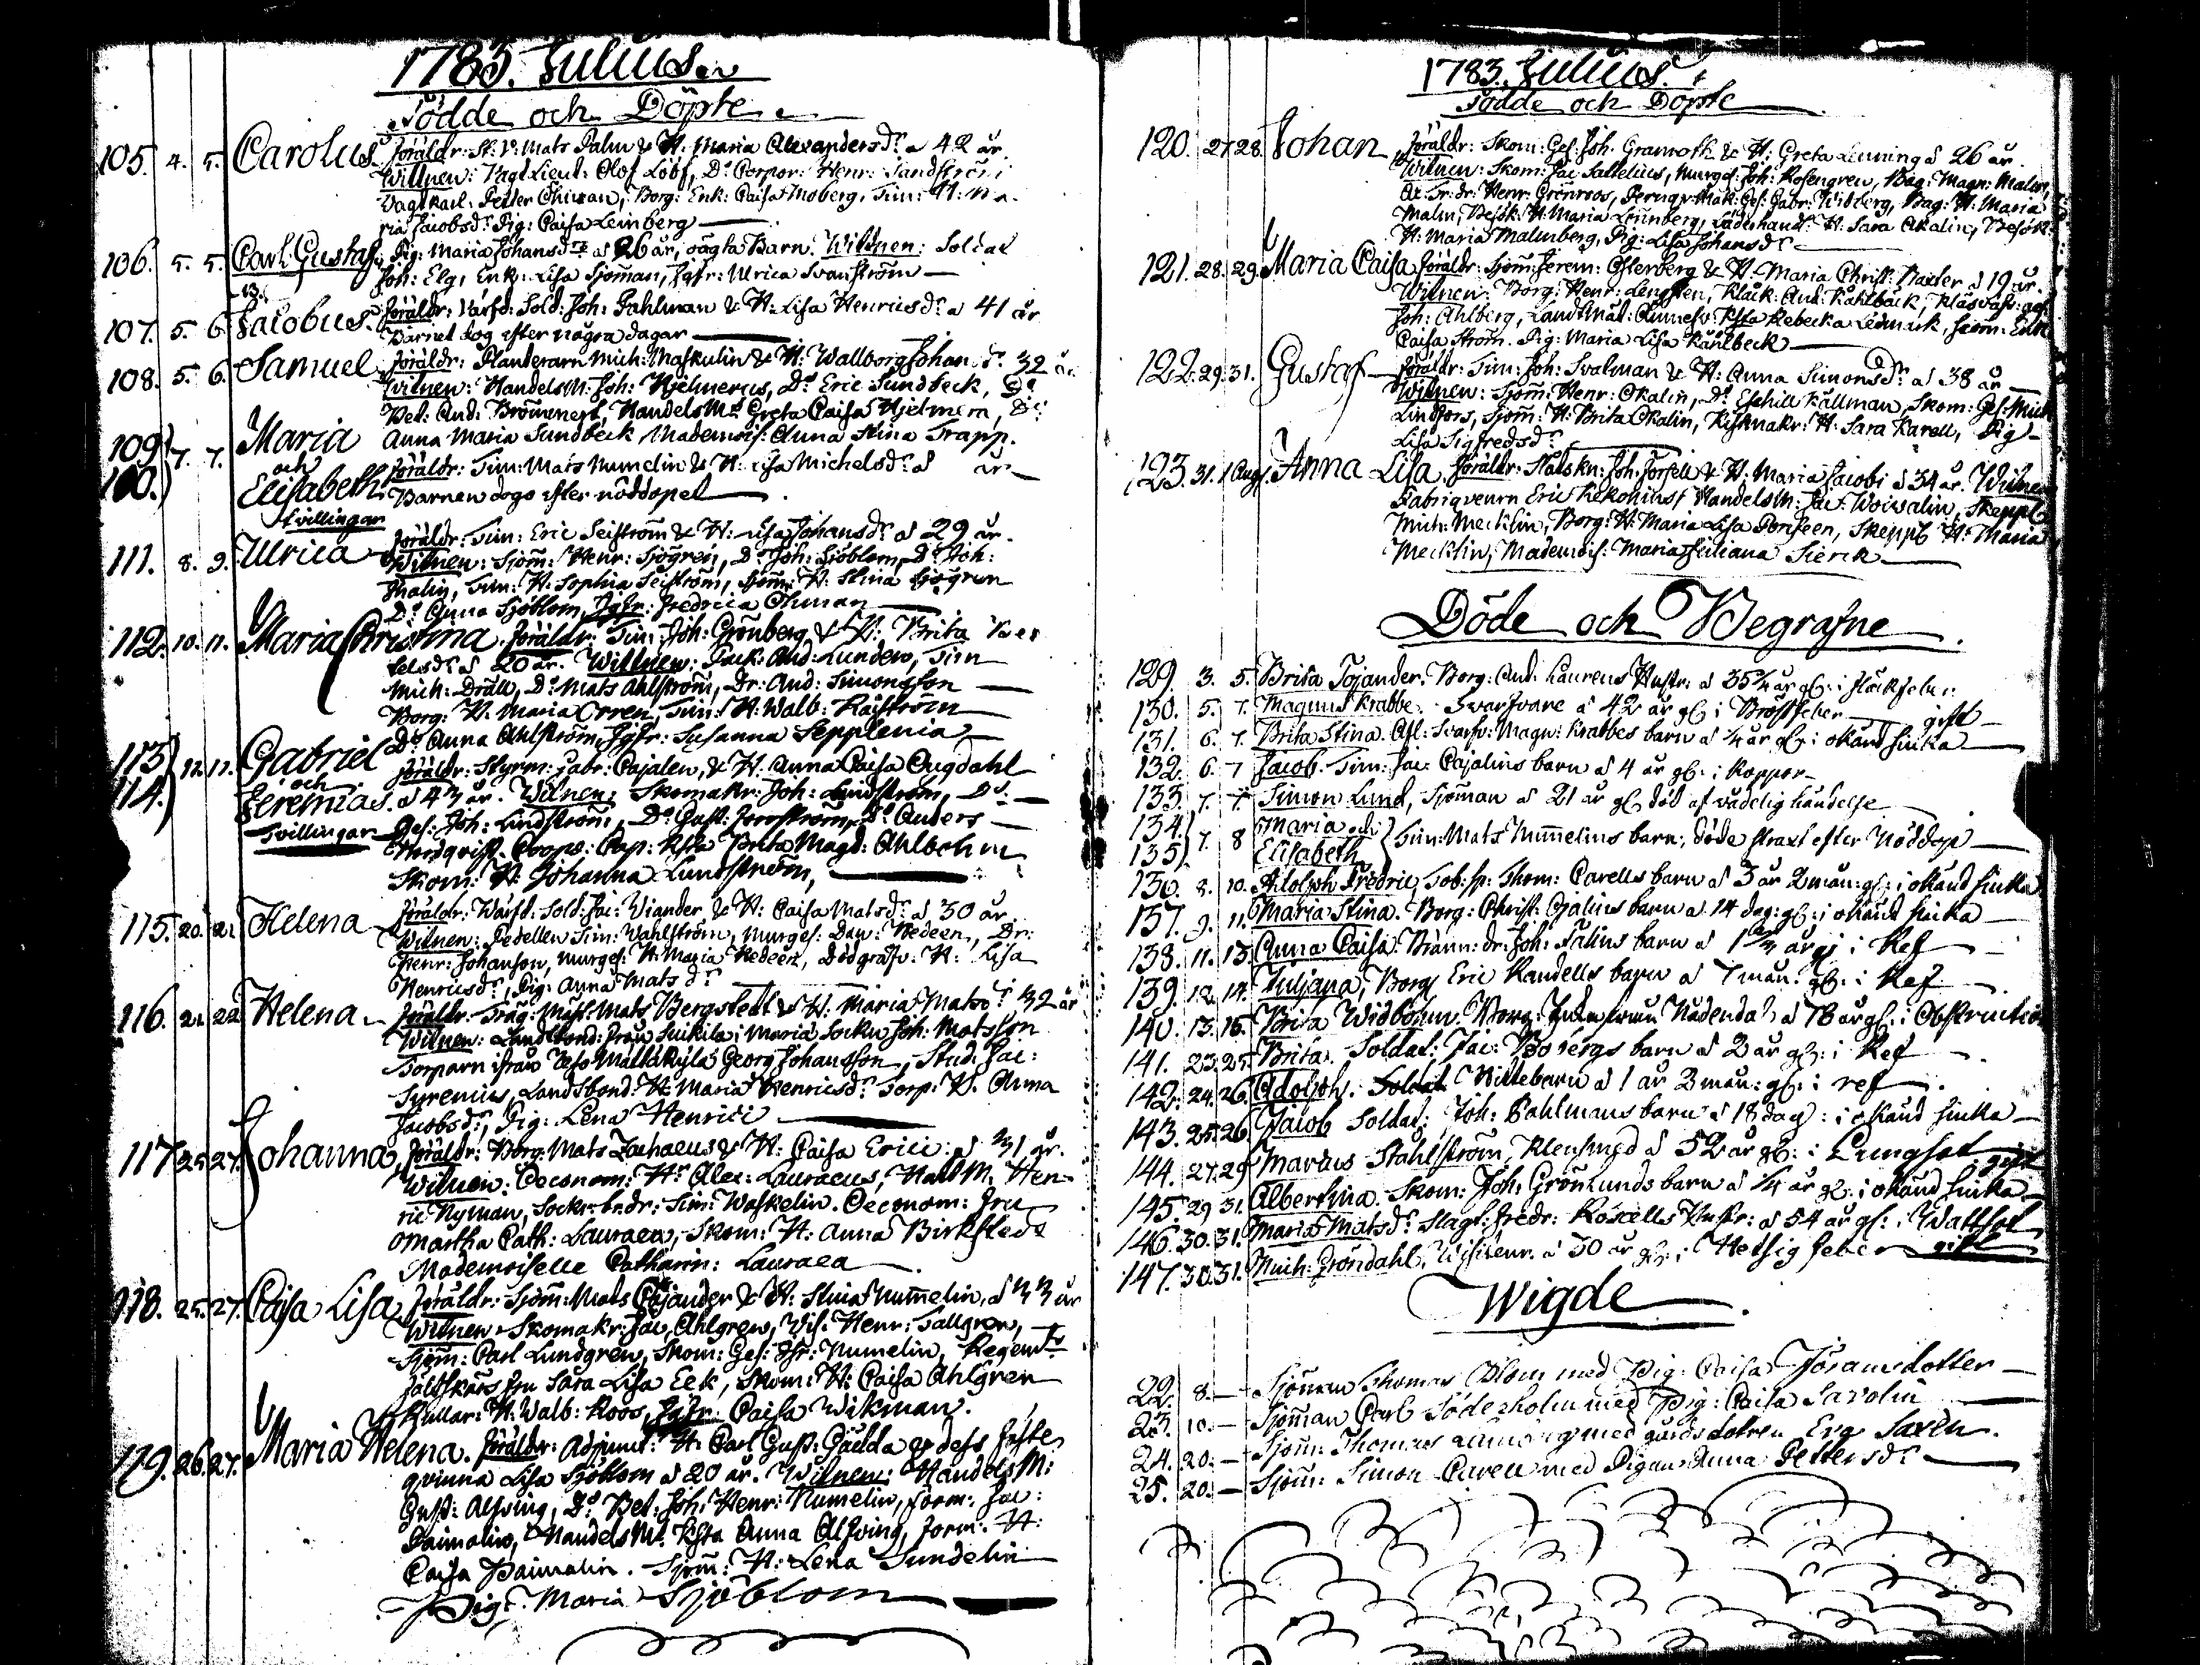 1783. Julius.
Födde och Döpte.
105. 4. 5. Carolus. Föräldr: Mats Palm & H: Maria Alexandersdr. a 42 år.
Wittnen: Vagt Lieut: Olof Lööf, Do Corpor: Henr: Sandström
Vagtkarl: Petter Öhman, Borg: Enk: Caisa Moberg, Tim: H: Ma
ria Jacobsdr. Pig: Caisa Leinberg
106. 5. 5. Carl Gustaf. Pig: Maria Johansdr. a 26 år, oägta Barn. Wittnen: Soldat
Joh: Elg, Enk: Lisa Sjöman, Jgfr: Ulrica Svanström
107. 5. 6. Jacobus. Föräldr: Värfd: Sold: Joh: Pahlman & H: Lisa Henricsdr. a 41 år
Barnet dog efter några dagar
108. 5. 6. Samuel Föräldr: Planterarn Mich: Maskulin & H: Wallborg Johansdr. 32 år
Witnen: HandelsM: Joh: Hjelmerus, Do Eric Sundbeck,
Bet: And: HandelsMs Greta Caisa Hjelmern, Do
Anna Maria Sundbeck Mademois: Anna Stina Trapp.
109 100. 7. 7. Maria
och
Elisabeth. Föräldr: Tim: Mats Numelin & H: Lisa Michelsdr. a år
Barnen dogo efter nöddopet
tvillingar
111. 8. 9. Ulrica Föräldr: Tim: Eric Seiström & H: Lisa Johansdr. a 29 år.
Witnen: Sjöm: Henr: Sjögren, Do Joh: Sjöblom, Do Joh:
Thalin, Tim: H: Sophia Seiström, Sjöm: H: Stina Sjögren
Do Anna Sjöblom, Jgfr: Fredrica Öhman
112. 10. 11. Maria Christina. Föräldr: Tim: Joh: Grönberg & H: Brita
a 20 år. Wittnen: And: Lunden, Tim
Mich: Dräll, Do Mats Ahlström, Dr: And: Simonsson
Borg: H: Maria Orren, Tim: H: Walb: Råström
Do Anna Ahlström, Jgfr: Susanna Sepplenia
113 114. 12. 12. Gabriel
och
Jeremias. Föräldr: Styrm: Gabr: Cajalen, & H: Anna Caisa Ongdahl
a 43 år. Witnen: Skomakr: Joh: Lindström, Do
Tvillingar Ges: Joh: Lindström, Do Gust: Do Anders
Nordqvist, Coopv: Cap: Brita Magd: Ahlbohm
Skom: H: Johanna Lundström,
115. 20. 21. Helena Föräldr: Wärfd: Sold: Jac: Viander & H: Caisa Matsdr. a 30 år
Witnen: Pedellen Sim: Wahlström, Murges: Dav: Hedeen, Dr:
Henr: Johanson, Murges: H: Maria Hedeen, Dödgräfv: H: Lisa
Henricsdr., Pig: Anna Matsdr.
116. 21. 22 Helena. Föräldr: Träg: Mäst: Mats Bergstedt & H: Maria Matsdr. 32 år
Witnen: Landtbond: från Suikila i Maria Sockn Joh: Matsson
Torparn ifrån Mälikkylä Georg Johansson, Stud: Jac:
Syrenius, Landsbond: H: Maria Henricsdr. Torp: H: Anna
Jacobsdr., Pig: Lena Henrici
117 25 27. Johanna, Föräldr: Borg: Mats Zachaeus & H: Caisa Erici: a 31 år.
Witnen: Oeconom: Hr Alex: Lauraeus, HandlM: Hen
ric Nyman, Sockr: br: dr: Sim: Waskelin. Oeconom: Fru
Martha Cath: Lauraea, Skom: H: Anna Birkstedt
Mademoiselle Catharin: Lauraea
118. 25. 27. Caisa Lisa Föräldr: Sjöm: Mats Cajander & H: Stina Numelin, a 33 år
Witnen Skomakr: Jac: Ahlgren, Vis: Henr: Tallgren,
Sjöm: Carl Lundgren, Skom: Ges: Numelin, Regemts
Fältskärs fru Sara Lisa Eek, Skom: H: Caisa Ahlgren
Kullar: H: Walb: Roos, Jgfr: Caisa Wikman.
119. 26. 27. Maria Helena. Föräldr: Adjunct: H: Carl Gust: Gadda & dess Fäste
qvinna Lisa Sjöblom a 20 år. Witnen: HandelsM:
Gust: Alfving, Do Bet: Joh: Henr: Numelin, Form: Jac:
Paimalin, HandelsM: Anna Alfving, Form: H:
Caisa Paimalin. Sjöm: H: Lena Sundelin
Pig: Maria Sjöblom
1783. Julius.
Födde och Döpte
120. 27 28. Johan Föräldr: Skom: Ges: Joh: Granroth & H: Greta Lenning a 26 år.
Witnen: Skom: Jac: Sallelius, Murges: Joh: Rosengren, Bag: Magn: Malm,
Henr: Grönroos, Ges: Gabr: Widberg, Bag: H: Maria
Malm, Besök: H: Maria Lönnberg, H: Sara Okalin, Besök:
H: Maria Malmberg, Pig: Lisa Johansdr.
121. 28. 29. Maria Caisa Föräldr: Sjöm: Jerem: Österberg & H: Maria Christ: a 19 år.
Witnen: Borg: Henr: Lengsten, Klåk: And: Kahlbäck,
Joh: Ahlberg, Landtmät: Rebecka Ledmark, Sjöm: Enk
Caisa Ström. Pig: Maria Lisa Kahlbeck
122. 29. 31. Gustaf Föräldr: Tim: Joh: Svalman & H: Anna Simonsdr. a 38 år
Witnen: Sjöm: Henr: Okalin, Do Eschill Källman, Skom: Ges: Mich
Lindfors, Sjöm: H: Brita Okalin, H: Sara Karell, Pig
Lisa Sigfredsdr.
123. 31. 1 Aug. Anna Lisa Föräldr: Joh: Forsell & H: Maria Jacobi a 34 år. Witnen
Fabriqveurn Eric HandelsM: Jac: Woivalin, Skepp
Mich: Mecklin, Borg: H: Maria Lisa Skepp H: Maria
Mecklin, Mademois: Maria Juliana Sierck
Döde och Begrafne
129. 3. 5. Brita Tojander. Borg: And: Laurens Hustr: a 35 3/4 år i fläckfeber
130. 5. 7. Magnus Krabbe. Svarfvare a 42 år i Bröstfeber gift
131. 6. 7. Brita Stina. Afl: Svarfv: Magn: Krabbes barn a 1/4 år i okänd siuka
132. 6. 7 Jacob. Tim: Jac: Cajalins barn a 4 år i Koppor
133. 7. 7. Simon Lund, Sjöman a 21 år död af vådelig händelse
134 135 7. 8 Maria och
Elisabeth Tim: Mats Numelins barn, döde straxt efter Nöddop
136. 8. 10. Adolph Fredric, Tob: sp: Thom: Carells barn a 3 år 2 mån: i okänd siuka
137. 9. 11. Maria Stina. Borg: Christ: Ojalins barn a 14 dag: i okänd siuka
138. 11. 13. Anna Caisa. Bränv: dr: Joh: Talins barn a 1 3/4 år i Ref
139. 12. 14. Juliana, Borg Eric Randells barn a 7 mån: i Ref
140. 13. 16. Brita Widbohm. Borg: från Nådendal a 78 år i Obstruction
141. 23 25 Brita. Soldat: Jac: Bobergs barn a 2 år i Ref
142. 24. 26. Adolph. Hittebarn a 1 år 3 mån: i ref
143. 25. 26. Jacob Soldat: Joh: Pahlmans barn a 18 dag: i okänd siuka
144. 27. 29 Marcus Stahlström, Klensmed a 52 år i Lungsot gift
145 29 31. Albertina. Skom: Joh: Grönlunds barn a 1/4 år i okänd siuka
146. 30. 31. Maria Matsdr. Slagt: Fredr: Roscells Hustr: a 54 år i Wattsot
147. 30. 31. Mich: Gröndahl, Visiteur. a 30 år i Hetsig feber gift
Wigde
22. 8. Sjöman Thomas Blom med Pig: Caisa Jöransdotter
23. 10. Sjöman Carl Söderholm med Pig: Caisa Savolin
24. 20. Sjöm: Thomas med gårds dottren Eva Saxén.
25. 20. Sjöm: Simon Carell med Pigan Anna Pettersdr.